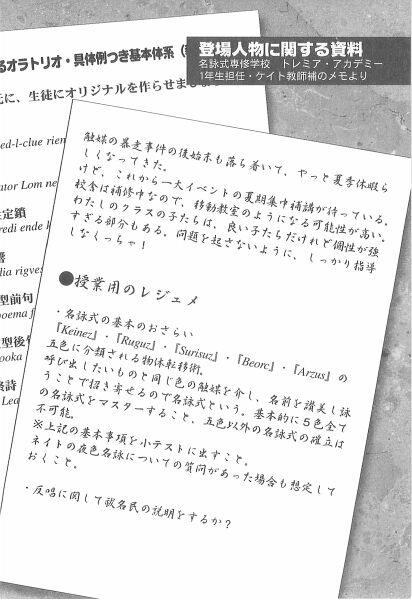 登場人物に関する資料
名詠式専修学校　トレミア・アカデミー
1年生担任・ケイト教師補のメモより
るオラトリオ・具体例つき基本体系
元に、生徒にオリジナルを作らせまし
ed-l-clue rien
ator Lom ne
定鎖
redi ende
響
lia rigves
型前句
poema f
型後
ooka
終詩
Lea
触媒の暴走事件の後始末も落ち着いて、やっと夏季休暇ら
しくなってきた。
けど、これから一大イベントの夏期集中補講が待っている。
校舎は補修中なので、移動教室のようになる可能性が高い。
わたしのクラスの子たちは、良い子たちだけれど個性が強
すぎる部分もある。問題を起さないように、しっかり指導
しなくっちゃ！
●授業用のレジュメ
・名詠式の基本のおさらい
『Keinez』・『Ruguz』・『Surisuz』・『Beorc』・『Arzus』の
五色に分類される物体転移術。
呼び出したいものと同じ色の触媒を介し、名前を讃美し詠
うことで招き寄せるので名詠式という。基本的に5色全て
の名詠式をマスターすること、五色以外の名詠式の確立は
不可能。
※上記の基本事項を小テストに出すこと。
ネイトの夜色名詠についての質問があった場合も想定して
おくこと。
・反唱に関して祓名民の説明をするか？